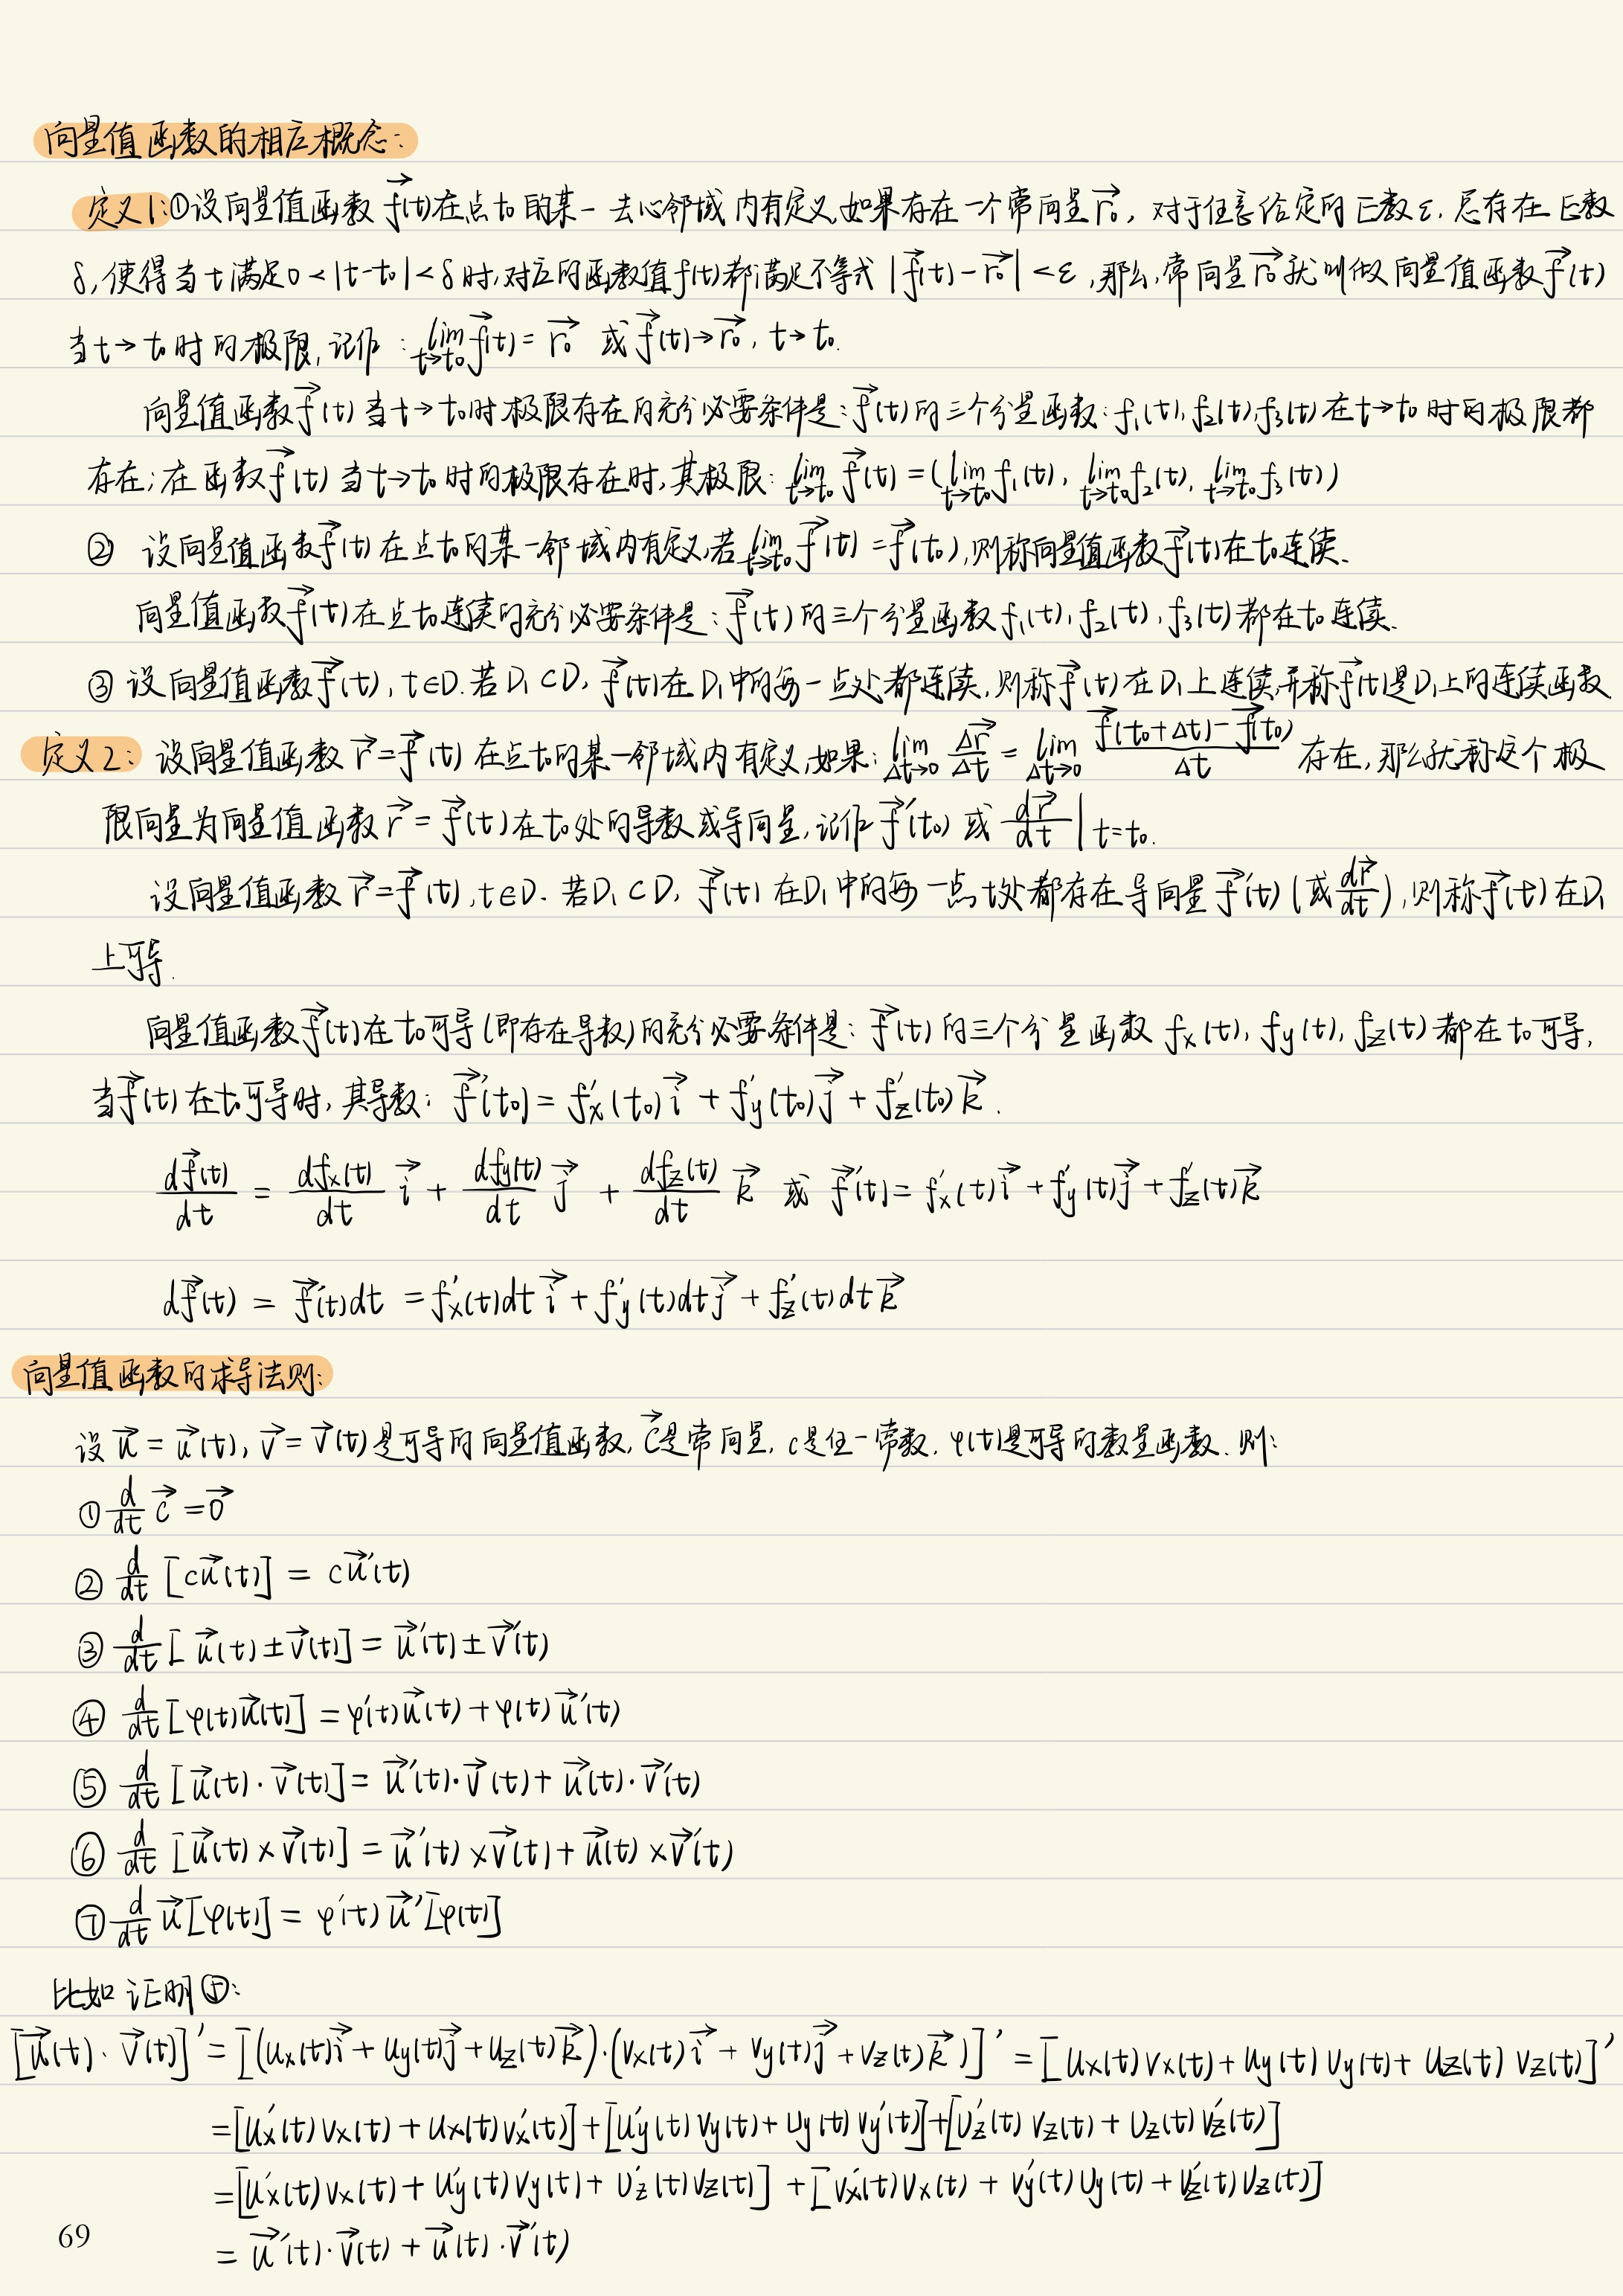 向量值函数的相应概念:
定义1:①设向量值函数 $\vec{f}(t)$在点t₀的某一去心邻域内有定义,如果存在一个常向量$\vec{r_0}$, 对于任意给定的正数ε, 总存在正数
δ,使得当t满足0<|t-t₀|<δ时,对应的函数值f(t)都满足不等式 $|\vec{f}(t)-\vec{r_0}|<ε$,那么,常向量$\vec{r_0}$就叫做向量值函数$\vec{f}(t)$
当t→t₀时的极限,记作: $\lim_{t→t_0}\vec{f}(t)=\vec{r_0}$ 或$\vec{f}(t)→\vec{r_0}$, t→t₀.
向量值函数$\vec{f}(t)$当t→t₀时极限存在的充分必要条件是:$\vec{f}(t)$的三个分量函数:f₁(t),f₂(t),f₃(t)在t→t₀时的极限都
存在;在函数$\vec{f}(t)$当t→t₀时的极限存在时,其极限: $\lim_{t→t_0}\vec{f}(t)=(\lim_{t→t_0}f_1(t), \lim_{t→t_0}f_2(t), \lim_{t→t_0}f_3(t))$
② 设向量值函数$\vec{f}(t)$在点t₀的某一邻域内有定义,若$\lim_{t→t_0}\vec{f}(t)=\vec{f}(t_0)$,则称向量值函数$\vec{f}(t)$在t₀连续.
向量值函数$\vec{f}(t)$在点t₀连续的充分必要条件是:$\vec{f}(t)$的三个分量函数f₁(t),f₂(t),f₃(t)都在t₀连续.
③ 设向量值函数$\vec{f}(t)$, t∈D.若D₁⊂D, $\vec{f}(t)$在D₁中的每一点处都连续,则称$\vec{f}(t)$在D₁上连续,并称$\vec{f}(t)$是D₁上的连续函数
定义2: 设向量值函数 $\vec{r}=\vec{f}(t)$在点t₀的某一邻域内有定义,如果: $\lim_{Δt→0}\frac{Δ\vec{r}}{Δt}=\lim_{Δt→0}\frac{\vec{f}(t_0+Δt)-\vec{f}(t_0)}{Δt}$ 存在,那么就称这个极
限向量为向量值函数$\vec{r}=\vec{f}(t)$在t₀处的导数或导向量,记作$\vec{f}'(t_0)$或 $\frac{d\vec{r}}{dt}|_{t=t_0}$.
设向量值函数$\vec{r}=\vec{f}(t)$,t∈D. 若D₁⊂D, $\vec{f}(t)$在D₁中的每一点t处都存在导向量$\vec{f}'(t)$(或$\frac{d\vec{r}}{dt}$),则称$\vec{f}(t)$在D₁
上可导.
向量值函数$\vec{f}(t)$在t₀可导(即存在导数)的充分必要条件是: $\vec{f}(t)$的三个分量函数 $f_x(t), f_y(t), f_z(t)$都在t₀可导,
当$\vec{f}(t)$在t₀可导时, 其导数: $\vec{f}'(t_0)=f_x'(t_0)\vec{i}+f_y'(t_0)\vec{j}+f_z'(t_0)\vec{k}$.
$\frac{d\vec{f}(t)}{dt}=\frac{df_x(t)}{dt}\vec{i}+\frac{df_y(t)}{dt}\vec{j}+\frac{df_z(t)}{dt}\vec{k}$ 或 $\vec{f}'(t)=f_x'(t)\vec{i}+f_y'(t)\vec{j}+f_z'(t)\vec{k}$
$d\vec{f}(t)=\vec{f}'(t)dt=f_x'(t)dt\vec{i}+f_y'(t)dt\vec{j}+f_z'(t)dt\vec{k}$
向量值函数的求导法则:
设$\vec{u}=\vec{u}(t), \vec{v}=\vec{v}(t)$是可导的向量值函数, $\vec{C}$是常向量, c是任一常数. φ(t)是可导的数量函数. 则:
① $\frac{d}{dt}\vec{c}=\vec{0}$
② $\frac{d}{dt}[c\vec{u}(t)]=c\vec{u}'(t)$
③ $\frac{d}{dt}[\vec{u}(t)±\vec{v}(t)]=\vec{u}'(t)±\vec{v}'(t)$
④ $\frac{d}{dt}[φ(t)\vec{u}(t)]=φ'(t)\vec{u}(t)+φ(t)\vec{u}'(t)$
⑤ $\frac{d}{dt}[\vec{u}(t)·\vec{v}(t)]=\vec{u}'(t)·\vec{v}(t)+\vec{u}(t)·\vec{v}'(t)$
⑥ $\frac{d}{dt}[\vec{u}(t)×\vec{v}(t)]=\vec{u}'(t)×\vec{v}(t)+\vec{u}(t)×\vec{v}'(t)$
⑦ $\frac{d}{dt}\vec{u}[φ(t)]=φ'(t)\vec{u}'[φ(t)]$
比如 证明⑤:
$[\vec{u}(t)·\vec{v}(t)]'=[(u_x(t)\vec{i}+u_y(t)\vec{j}+u_z(t)\vec{k})·(v_x(t)\vec{i}+v_y(t)\vec{j}+v_z(t)\vec{k})]'=[u_x(t)v_x(t)+u_y(t)v_y(t)+u_z(t)v_z(t)]'$
$=[u_x'(t)v_x(t)+u_x(t)v_x'(t)]+[u_y'(t)v_y(t)+u_y(t)v_y'(t)]+[u_z'(t)v_z(t)+u_z(t)v_z'(t)]$
$=[u_x'(t)v_x(t)+u_y'(t)v_y(t)+u_z'(t)v_z(t)]+[v_x'(t)u_x(t)+v_y'(t)u_y(t)+v_z'(t)u_z(t)]$
$=\vec{u}'(t)·\vec{v}(t)+\vec{u}(t)·\vec{v}'(t)$
69